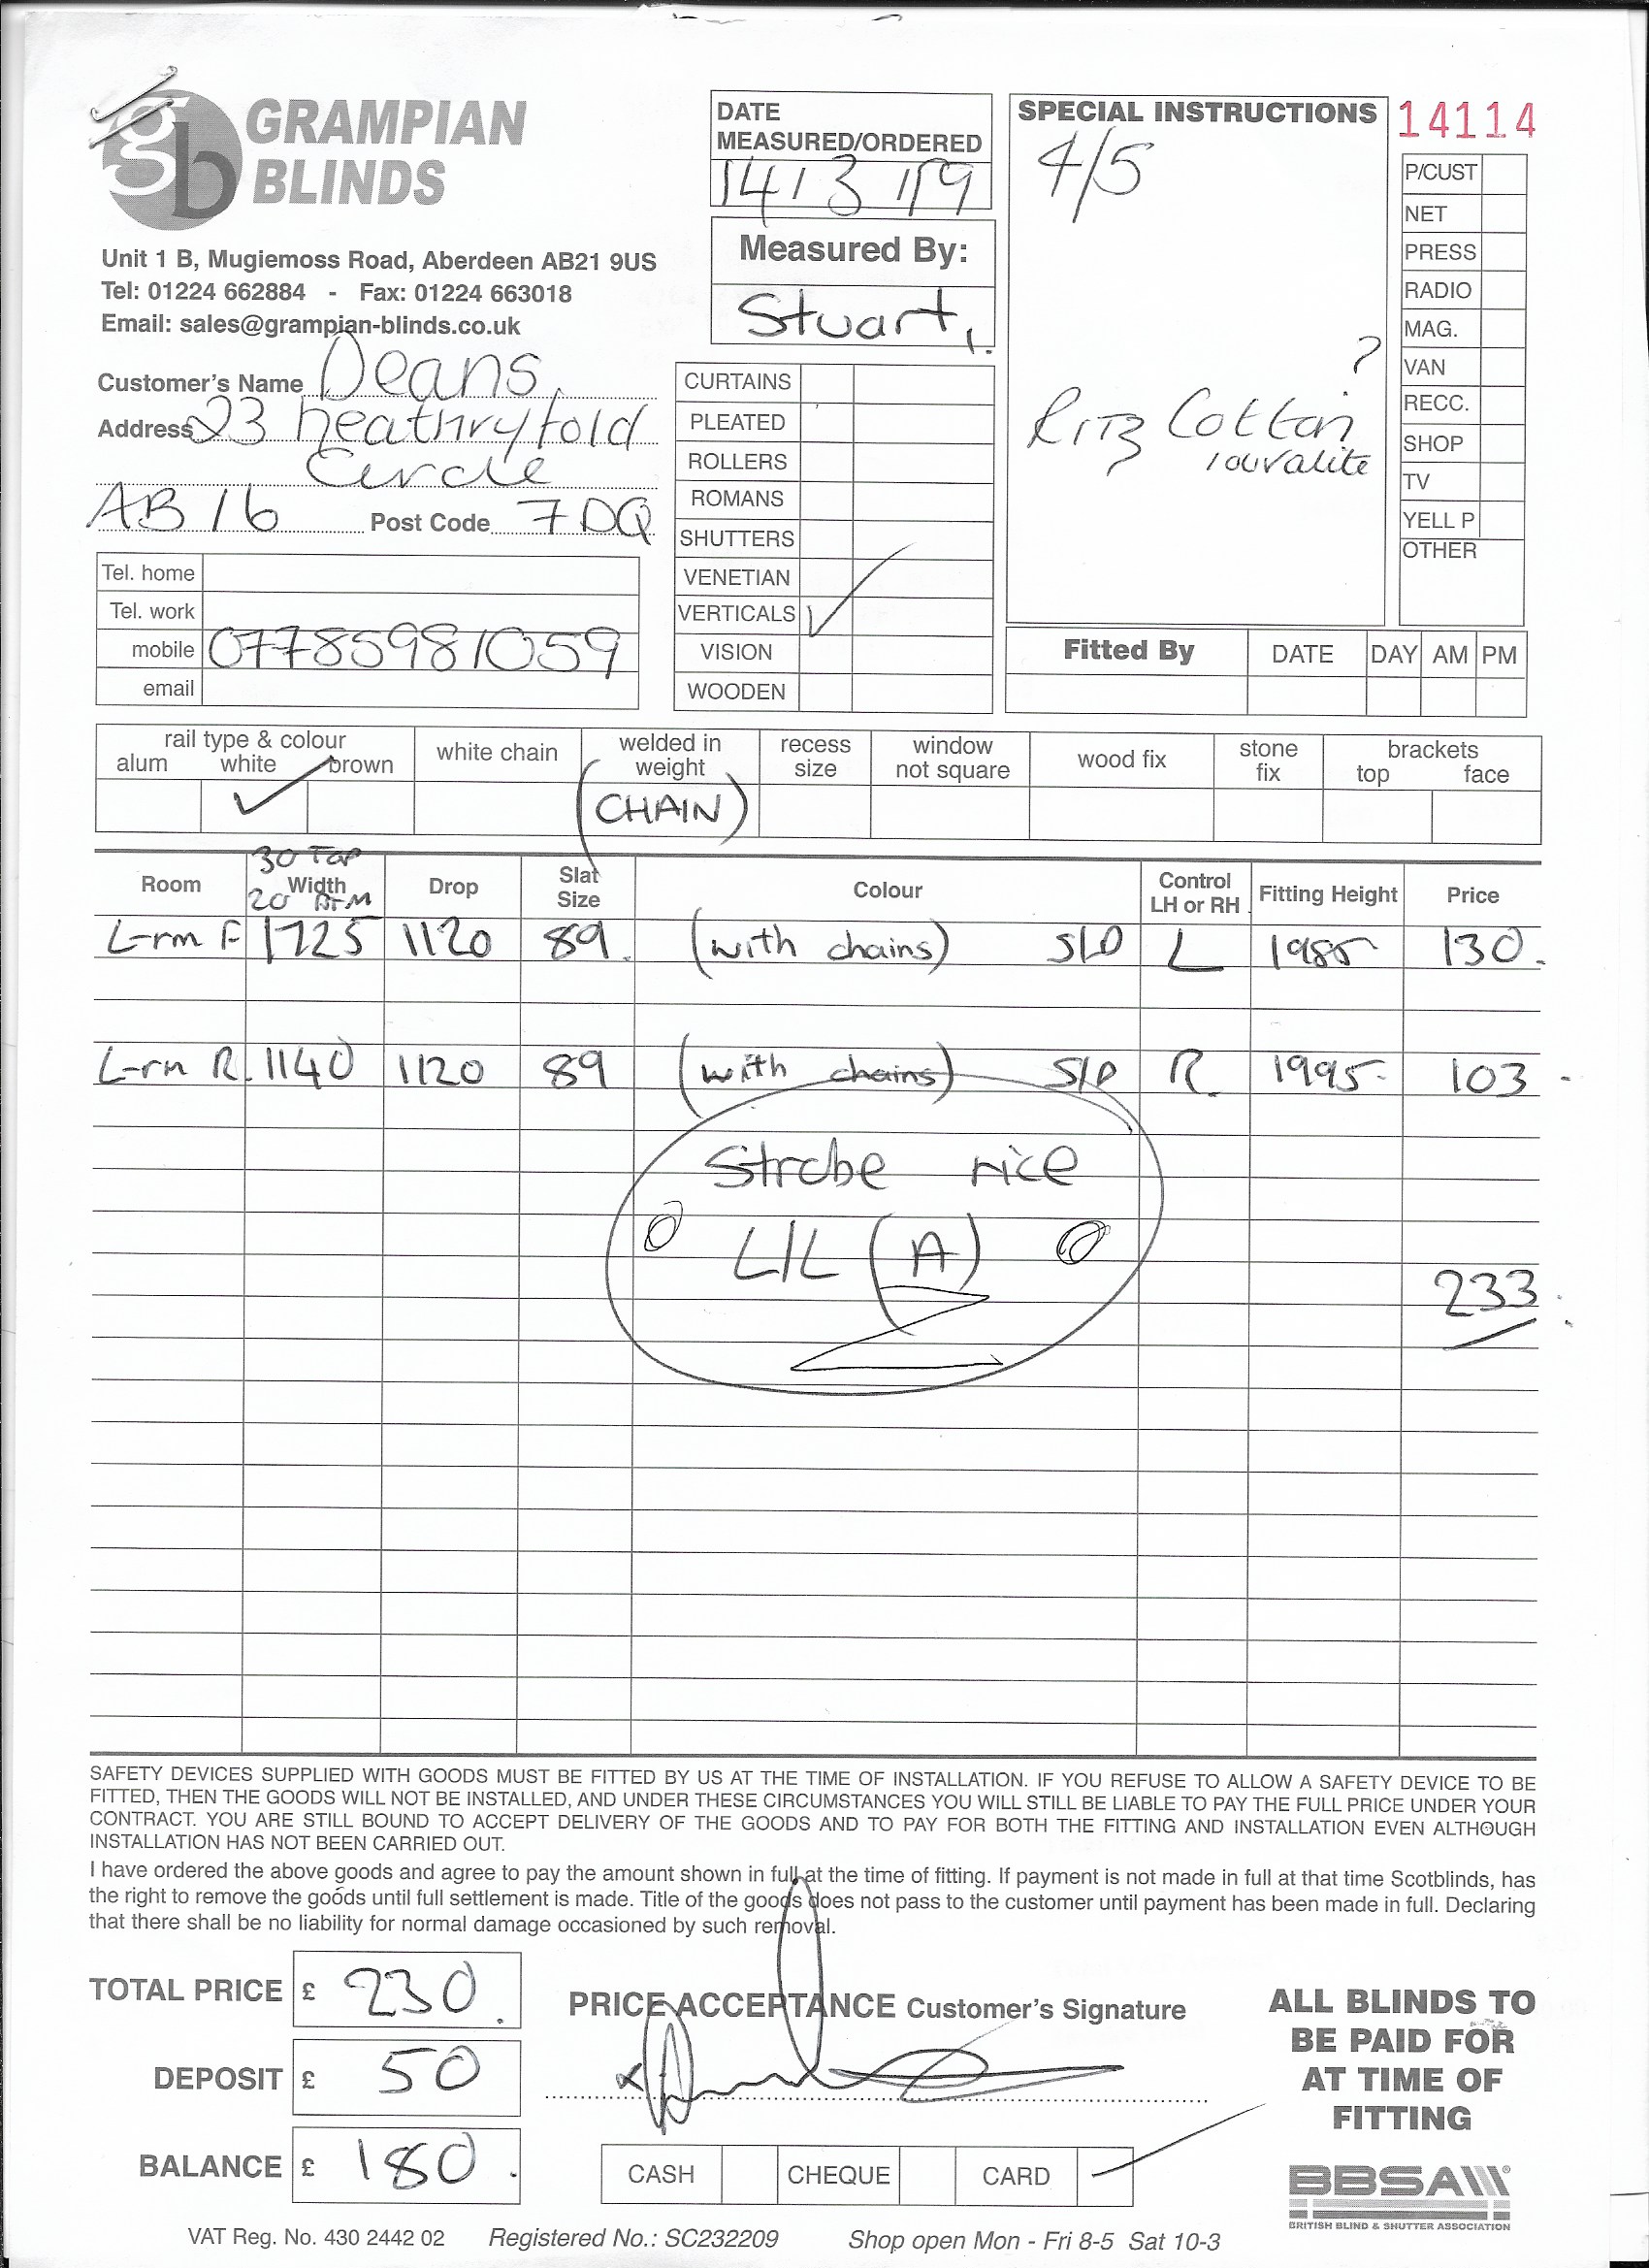 GRAMPIAN
BLINDS
Unit 1 B, Mugiemoss Road, Aberdeen AB21 9US
Tel: 01224 662884 - Fax: 01224 663018
Email: sales@grampian-blinds.co.uk
Customer's Name Deans
Address 23 heathryfold
Circle
AB16 Post Code 7DQ
Tel. home
Tel. work
mobile 07785981059
email
DATE
MEASURED/ORDERED
14/3/19
Measured By:
Stuart
CURTAINS
PLEATED
ROLLERS
ROMANS
SHUTTERS
VENETIAN
VERTICALS ✓
VISION
WOODEN
SPECIAL INSTRUCTIONS
4/5
?
Ritz Cotton
louvalite
14114
P/CUST
NET
PRESS
RADIO
MAG.
VAN
RECC.
SHOP
TV
YELL P
OTHER
Fitted By DATE DAY AM PM
rail type & colour
alum white brown
✓
white chain
welded in
weight
(CHAIN)
recess
size
window
not square
wood fix
stone
fix
brackets
top face
30 Top
Room Width Drop Slat Size Colour Control LH or RH Fitting Height Price
20 BTM
L-rm F 1725 1120 89 (with chains) S/D L 1985 130
L-rm R. 1140 1120 89 (with chains) S/D R 1995 103
Strobe rice
L/L (A)
233
SAFETY DEVICES SUPPLIED WITH GOODS MUST BE FITTED BY US AT THE TIME OF INSTALLATION. IF YOU REFUSE TO ALLOW A SAFETY DEVICE TO BE
FITTED, THEN THE GOODS WILL NOT BE INSTALLED, AND UNDER THESE CIRCUMSTANCES YOU WILL STILL BE LIABLE TO PAY THE FULL PRICE UNDER YOUR
CONTRACT. YOU ARE STILL BOUND TO ACCEPT DELIVERY OF THE GOODS AND TO PAY FOR BOTH THE FITTING AND INSTALLATION EVEN ALTHOUGH
INSTALLATION HAS NOT BEEN CARRIED OUT.
I have ordered the above goods and agree to pay the amount shown in full at the time of fitting. If payment is not made in full at that time Scotblinds, has
the right to remove the goods until full settlement is made. Title of the goods does not pass to the customer until payment has been made in full. Declaring
that there shall be no liability for normal damage occasioned by such removal.
TOTAL PRICE £ 230
DEPOSIT £ 50
BALANCE £ 180
PRICE ACCEPTANCE Customer's Signature
CASH CHEQUE CARD
ALL BLINDS TO
BE PAID FOR
AT TIME OF
FITTING
BBSA
BRITISH BLIND & SHUTTER ASSOCIATION
VAT Reg. No. 430 2442 02 Registered No.: SC232209 Shop open Mon - Fri 8-5 Sat 10-3